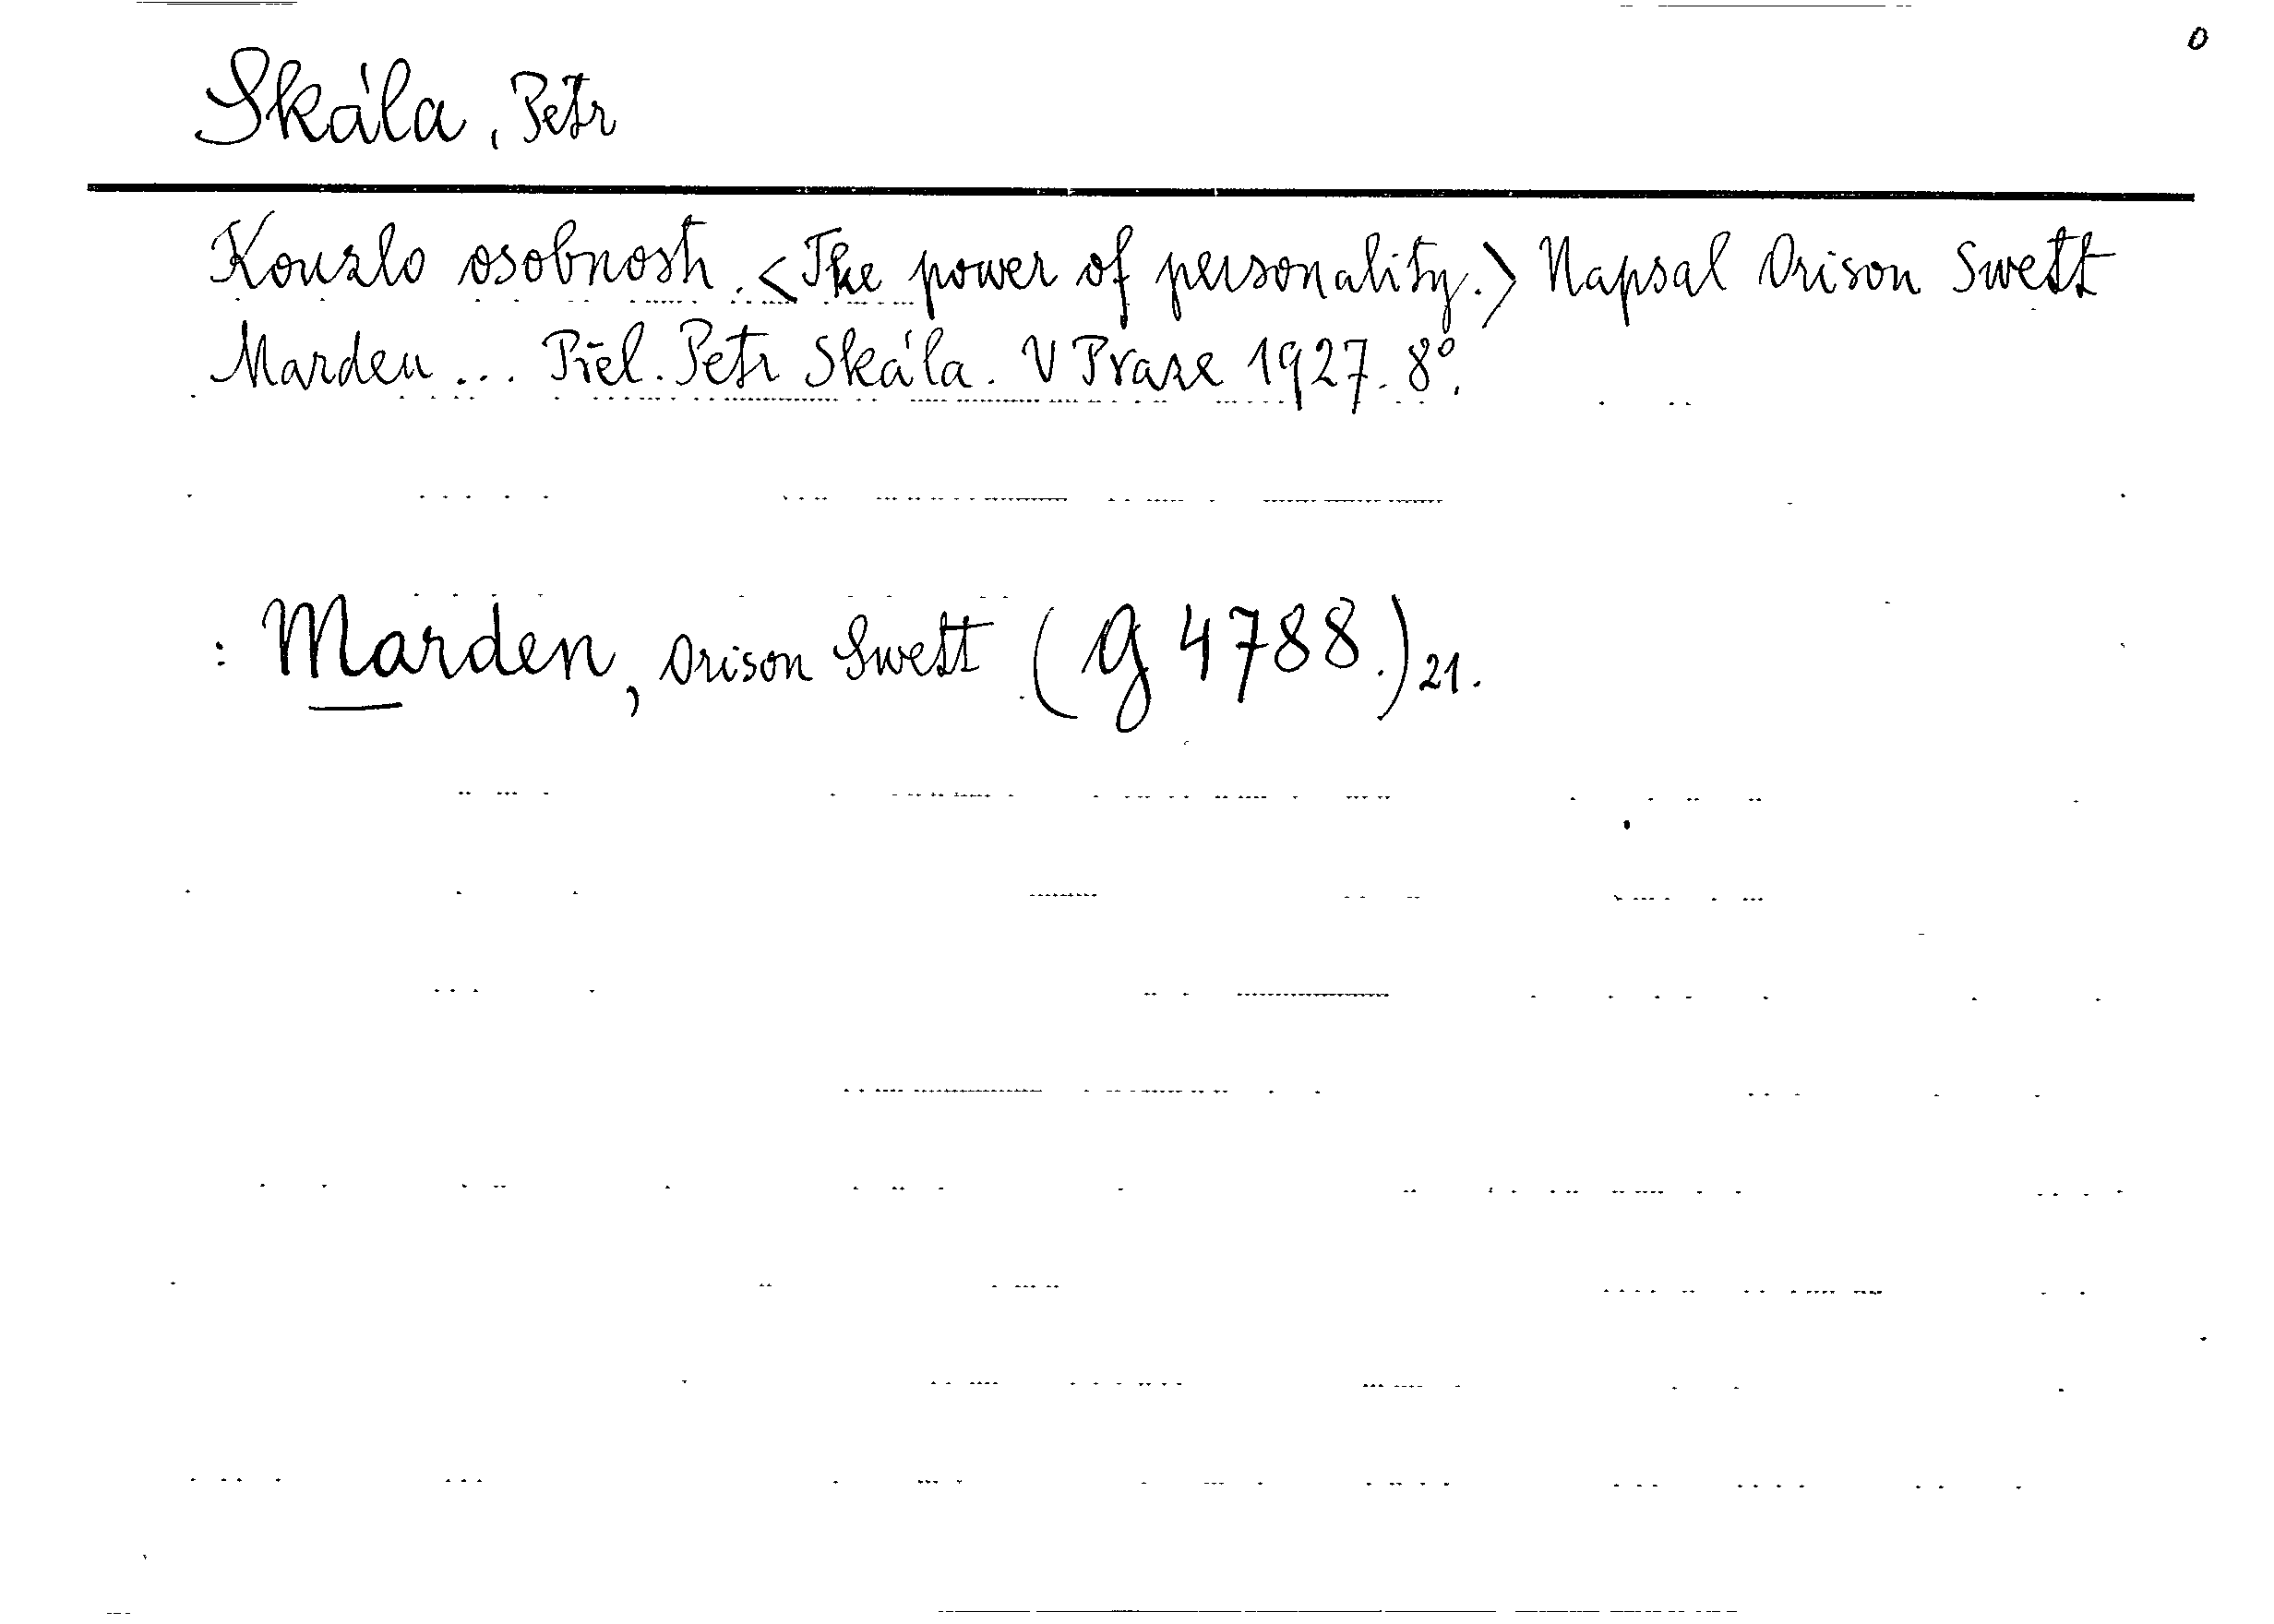 0
Skála, Petr
Kouzlo osobnosti. <The power of personality.> Napsal Orison Swett
Marden ... Přel. Petr Skála. V Praze 1927. 8°.
: Marden, Orison Swett (g 4788.) 21.